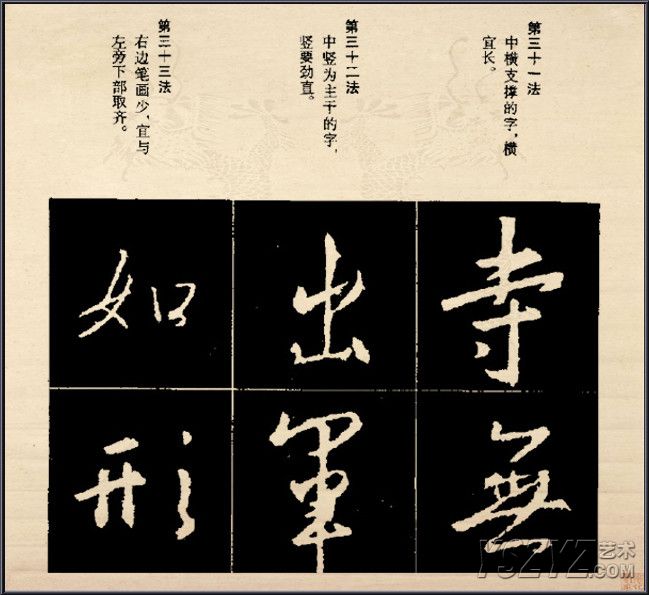 第三十一法
中横支撑的字，横
宜长。
第三十二法
中竖为主干的字，
竖要劲直。
第三十三法
右边笔画少，宜与
左旁下部取齐。
寺
無
出
軍
如
形
YSZYZ艺术
.COM